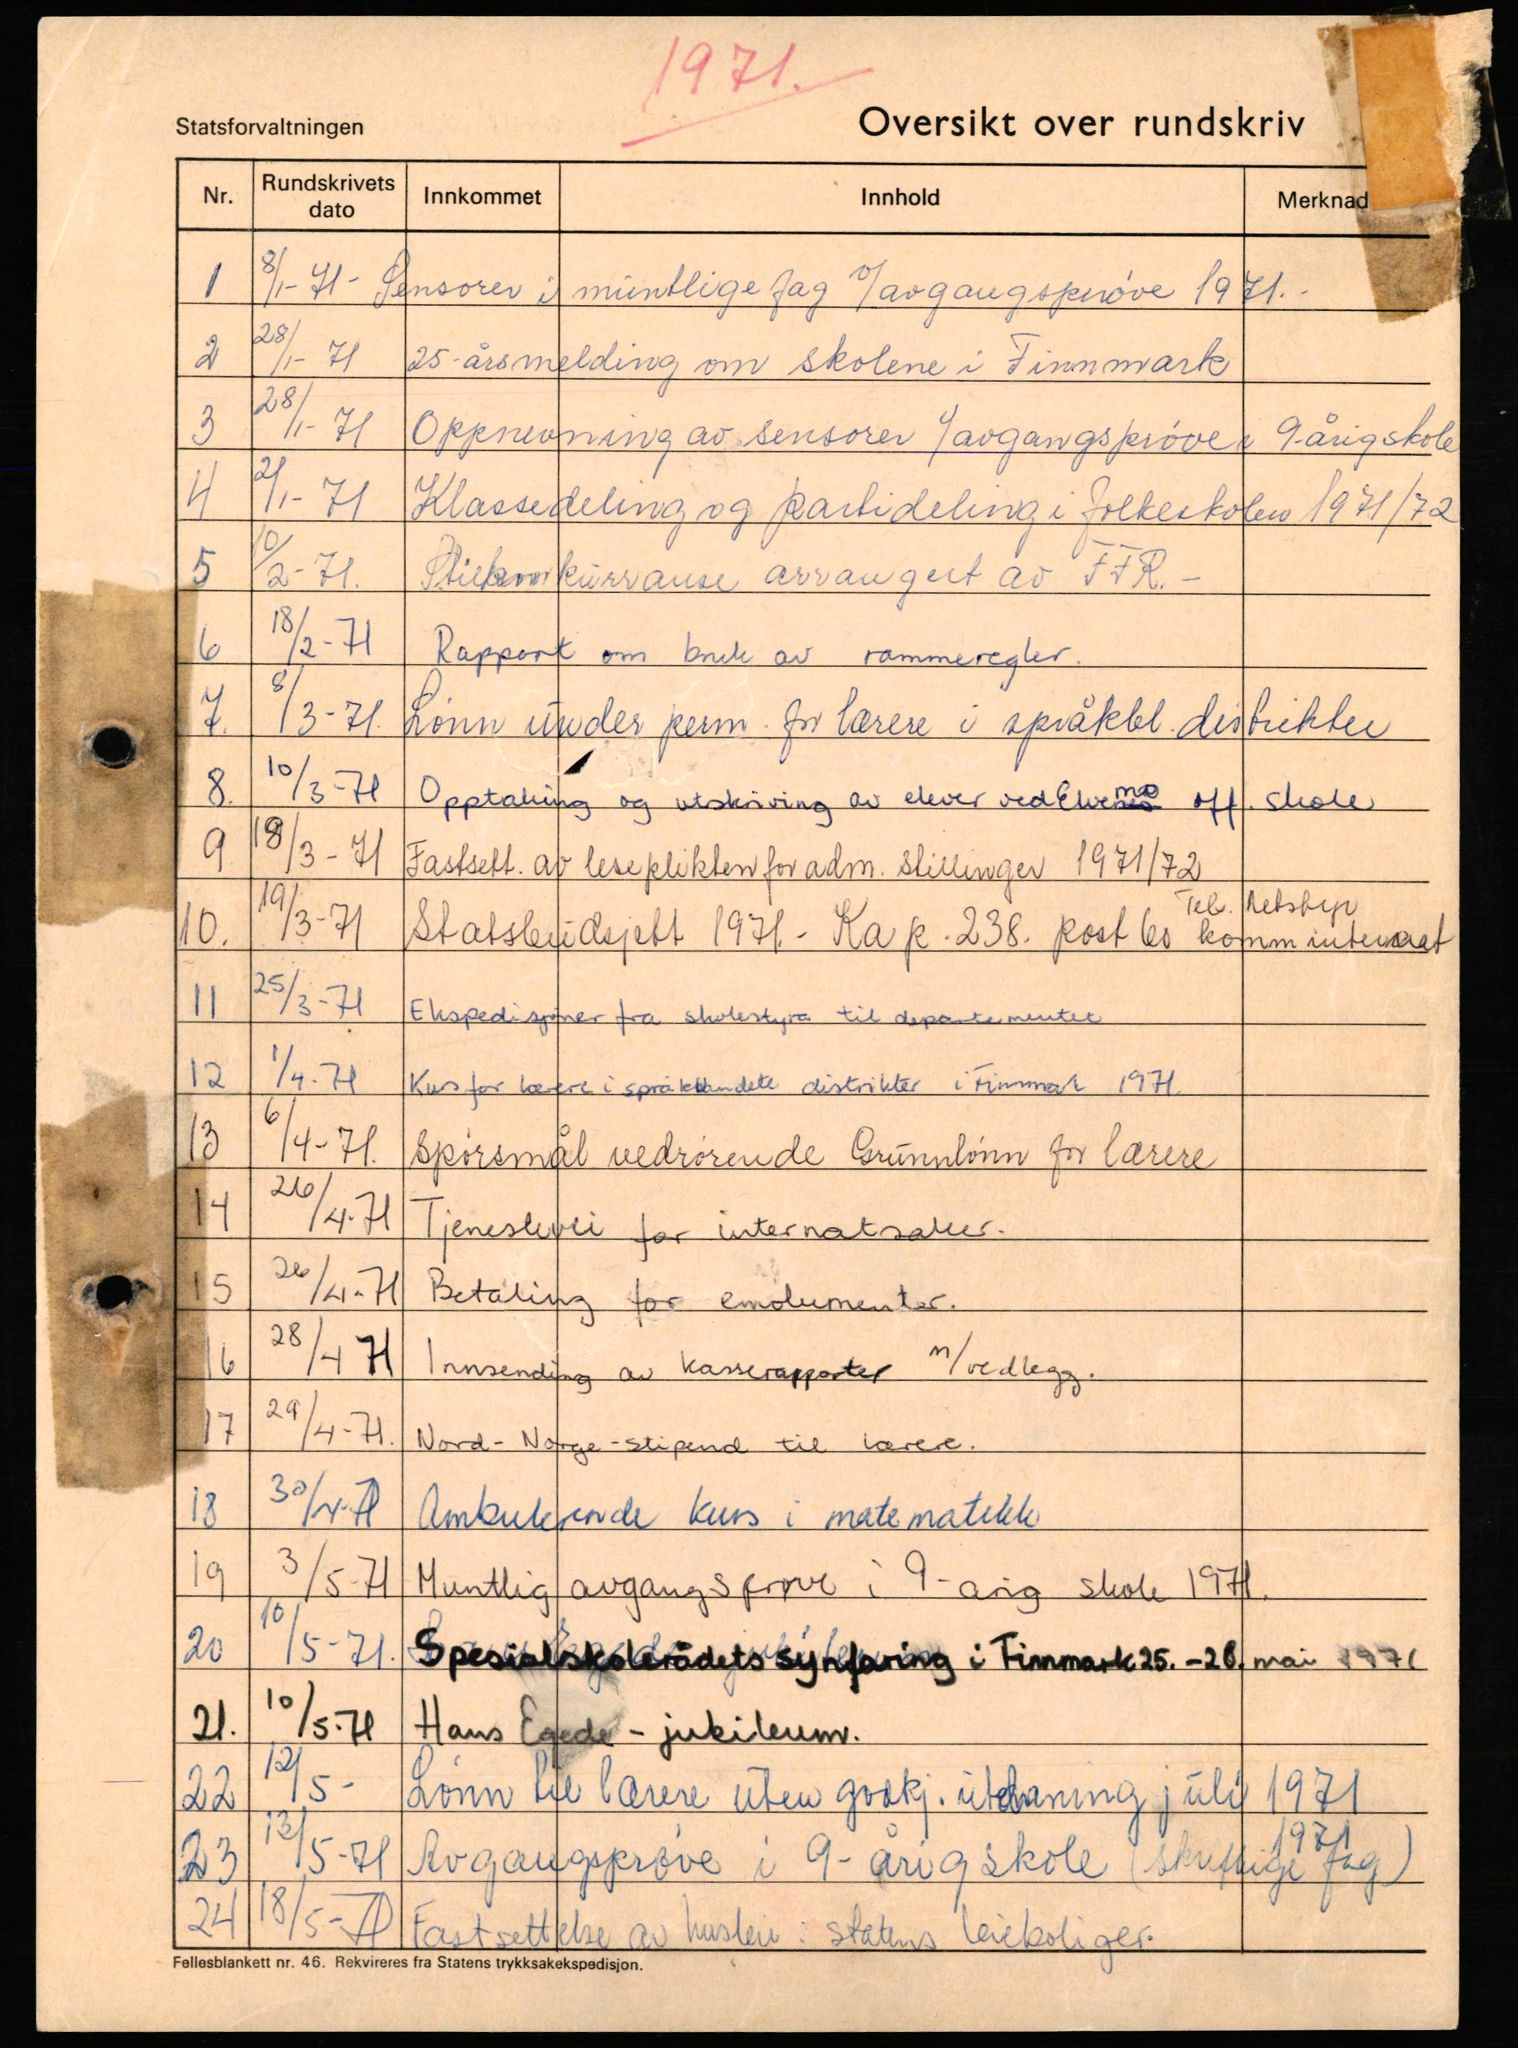 1971.
Statsforvaltningen
Oversikt over rundskriv
Nr. Rundskrivets dato Innkommet Innhold Merknad
1 8/1-71- Sensorer i muntlige fag v/avgangsprøve 1971.-
2 28/1-71 25-årsmelding om skolene i Finnmark
3 28/1-71 Oppnevning av sensorer v/avgangsprøve i 9-årig skole
4 2/1-71 Klassedeling og partideling i folkeskolen 1971/72
5 10/2-71. arrangert av FFR.-
6 18/2-71 Rapport om bruk av rammeregler.
7. 8/3-71. Lønn under perm. for lærere i språkbl. distrikter
8. 10/3-71 Opptaking og utskriving av elever ved Elvenes mo off. skole
9 18/3-71 Fastsett. av leseplikten for adm. stillinger 1971/72
Tel. Netsbyr
10. 19/3-71 Statsbudsjett 1971.- Kap. 238. post 60 komm internat
11 25/3-71 Ekspedisjoner fra skolestyra til departementet
12 1/4-71 Kurs for lærere i språkblandete distrikter i Finnmark 1971.
13 6/4-71. Spørsmål vedrørende Grunnlønn for lærere
14 26/4-71 Tjenestevei for internatsaker.
15 26/4-71 Betaling for emolumenter.
16 28/4 71 Innsending av kasserapporter m/vedlegg.
17 29/4-71. Nord-Norge-stipend til lærere.
18 30/4-71 Ambulerende kurs i matematikk
19 3/5-71 Muntlig avgangsprøve i 9-årig skole 1971.
20 10/5-71. Spesialskolerådets synfaring i Finnmark 25.-28. mai 1971
21. 10/5-71 Hans Egede - jubileum.
22 12/5- Lønn til lærere uten godkj. utdaning juli 1971
1971
23 12/5-71 Avgangsprøve i 9-årig skole (skriftlige fag)
24 18/5-71 Fastsettelse av husleie i statens leieboliger.
Fellesblankett nr. 46. Rekvireres fra Statens trykksakekspedisjon.